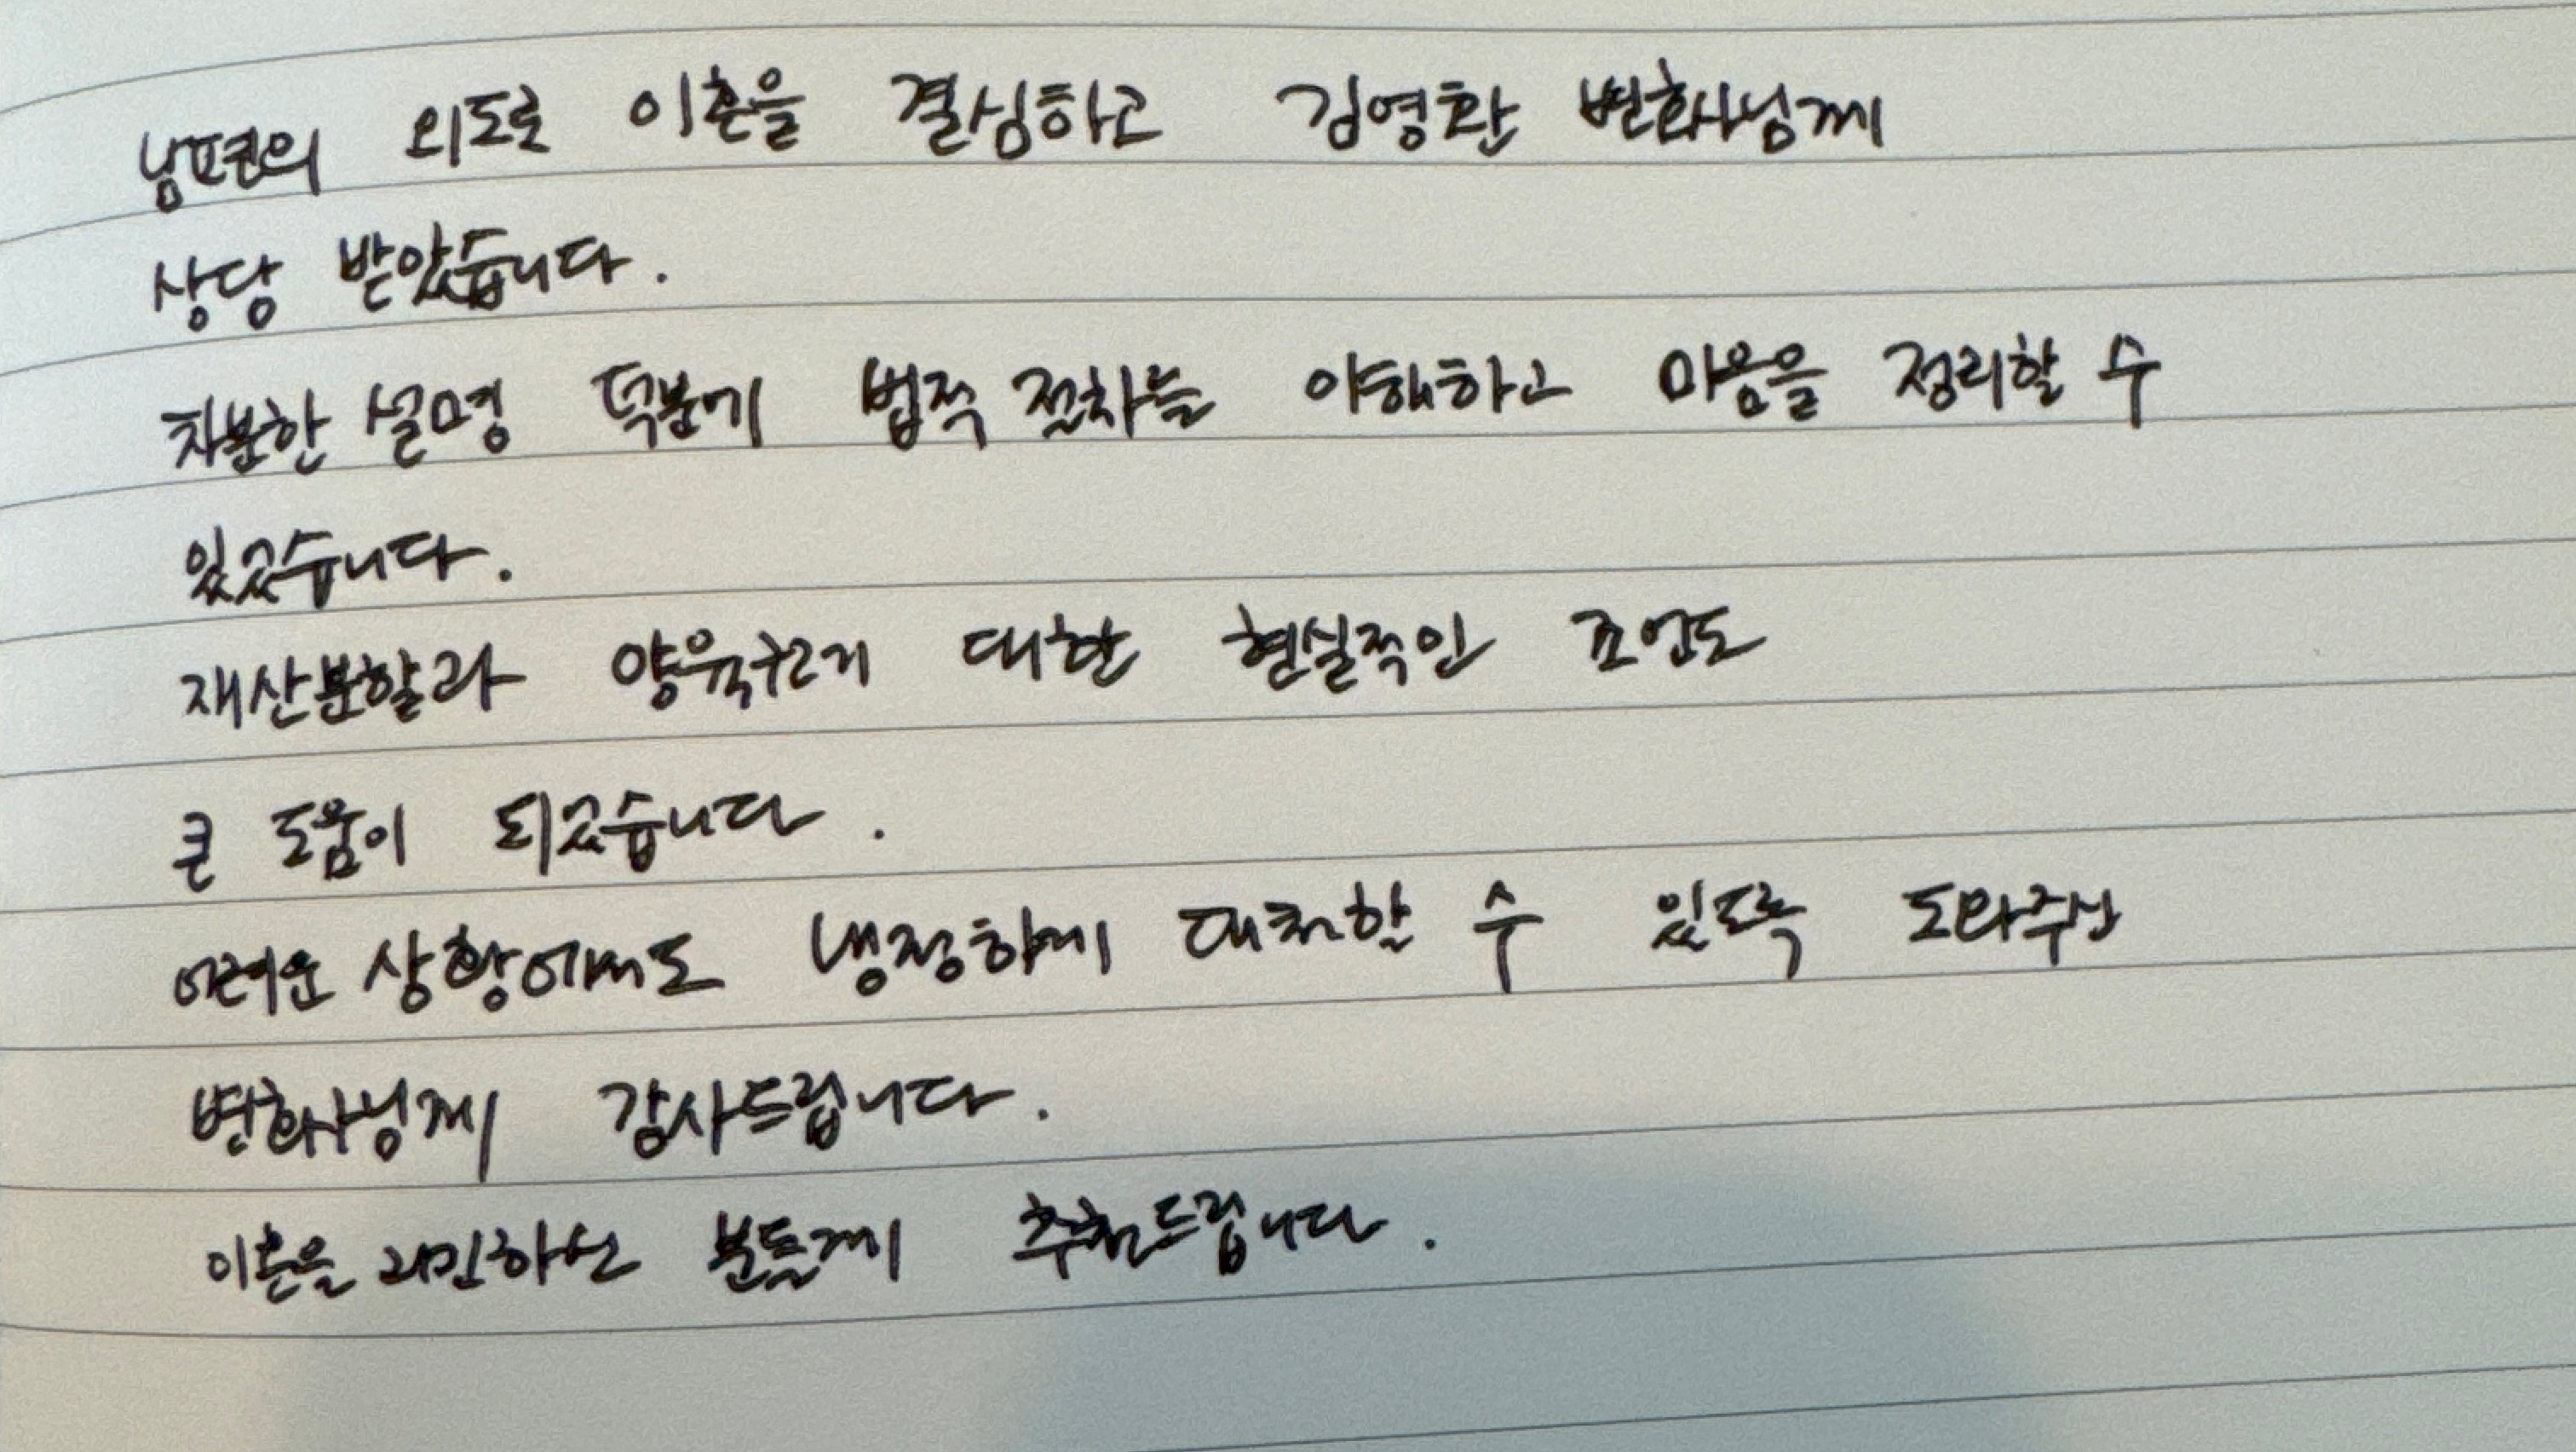 남편의 외도로 이혼을 결심하고 김영환 변호사님께
상담 받았습니다.
차분한 설명 덕분에 법적 절차를 이해하고 마음을 정리할 수
있었습니다.
재산분할과 양육권에 대한 현실적인 조언도
큰 도움이 되었습니다.
어려운 상황에서도 냉정하게 대처할 수 있도록 도와주신
변호사님께 감사드립니다.
이혼을 고민하신 분들께 추천드립니다.